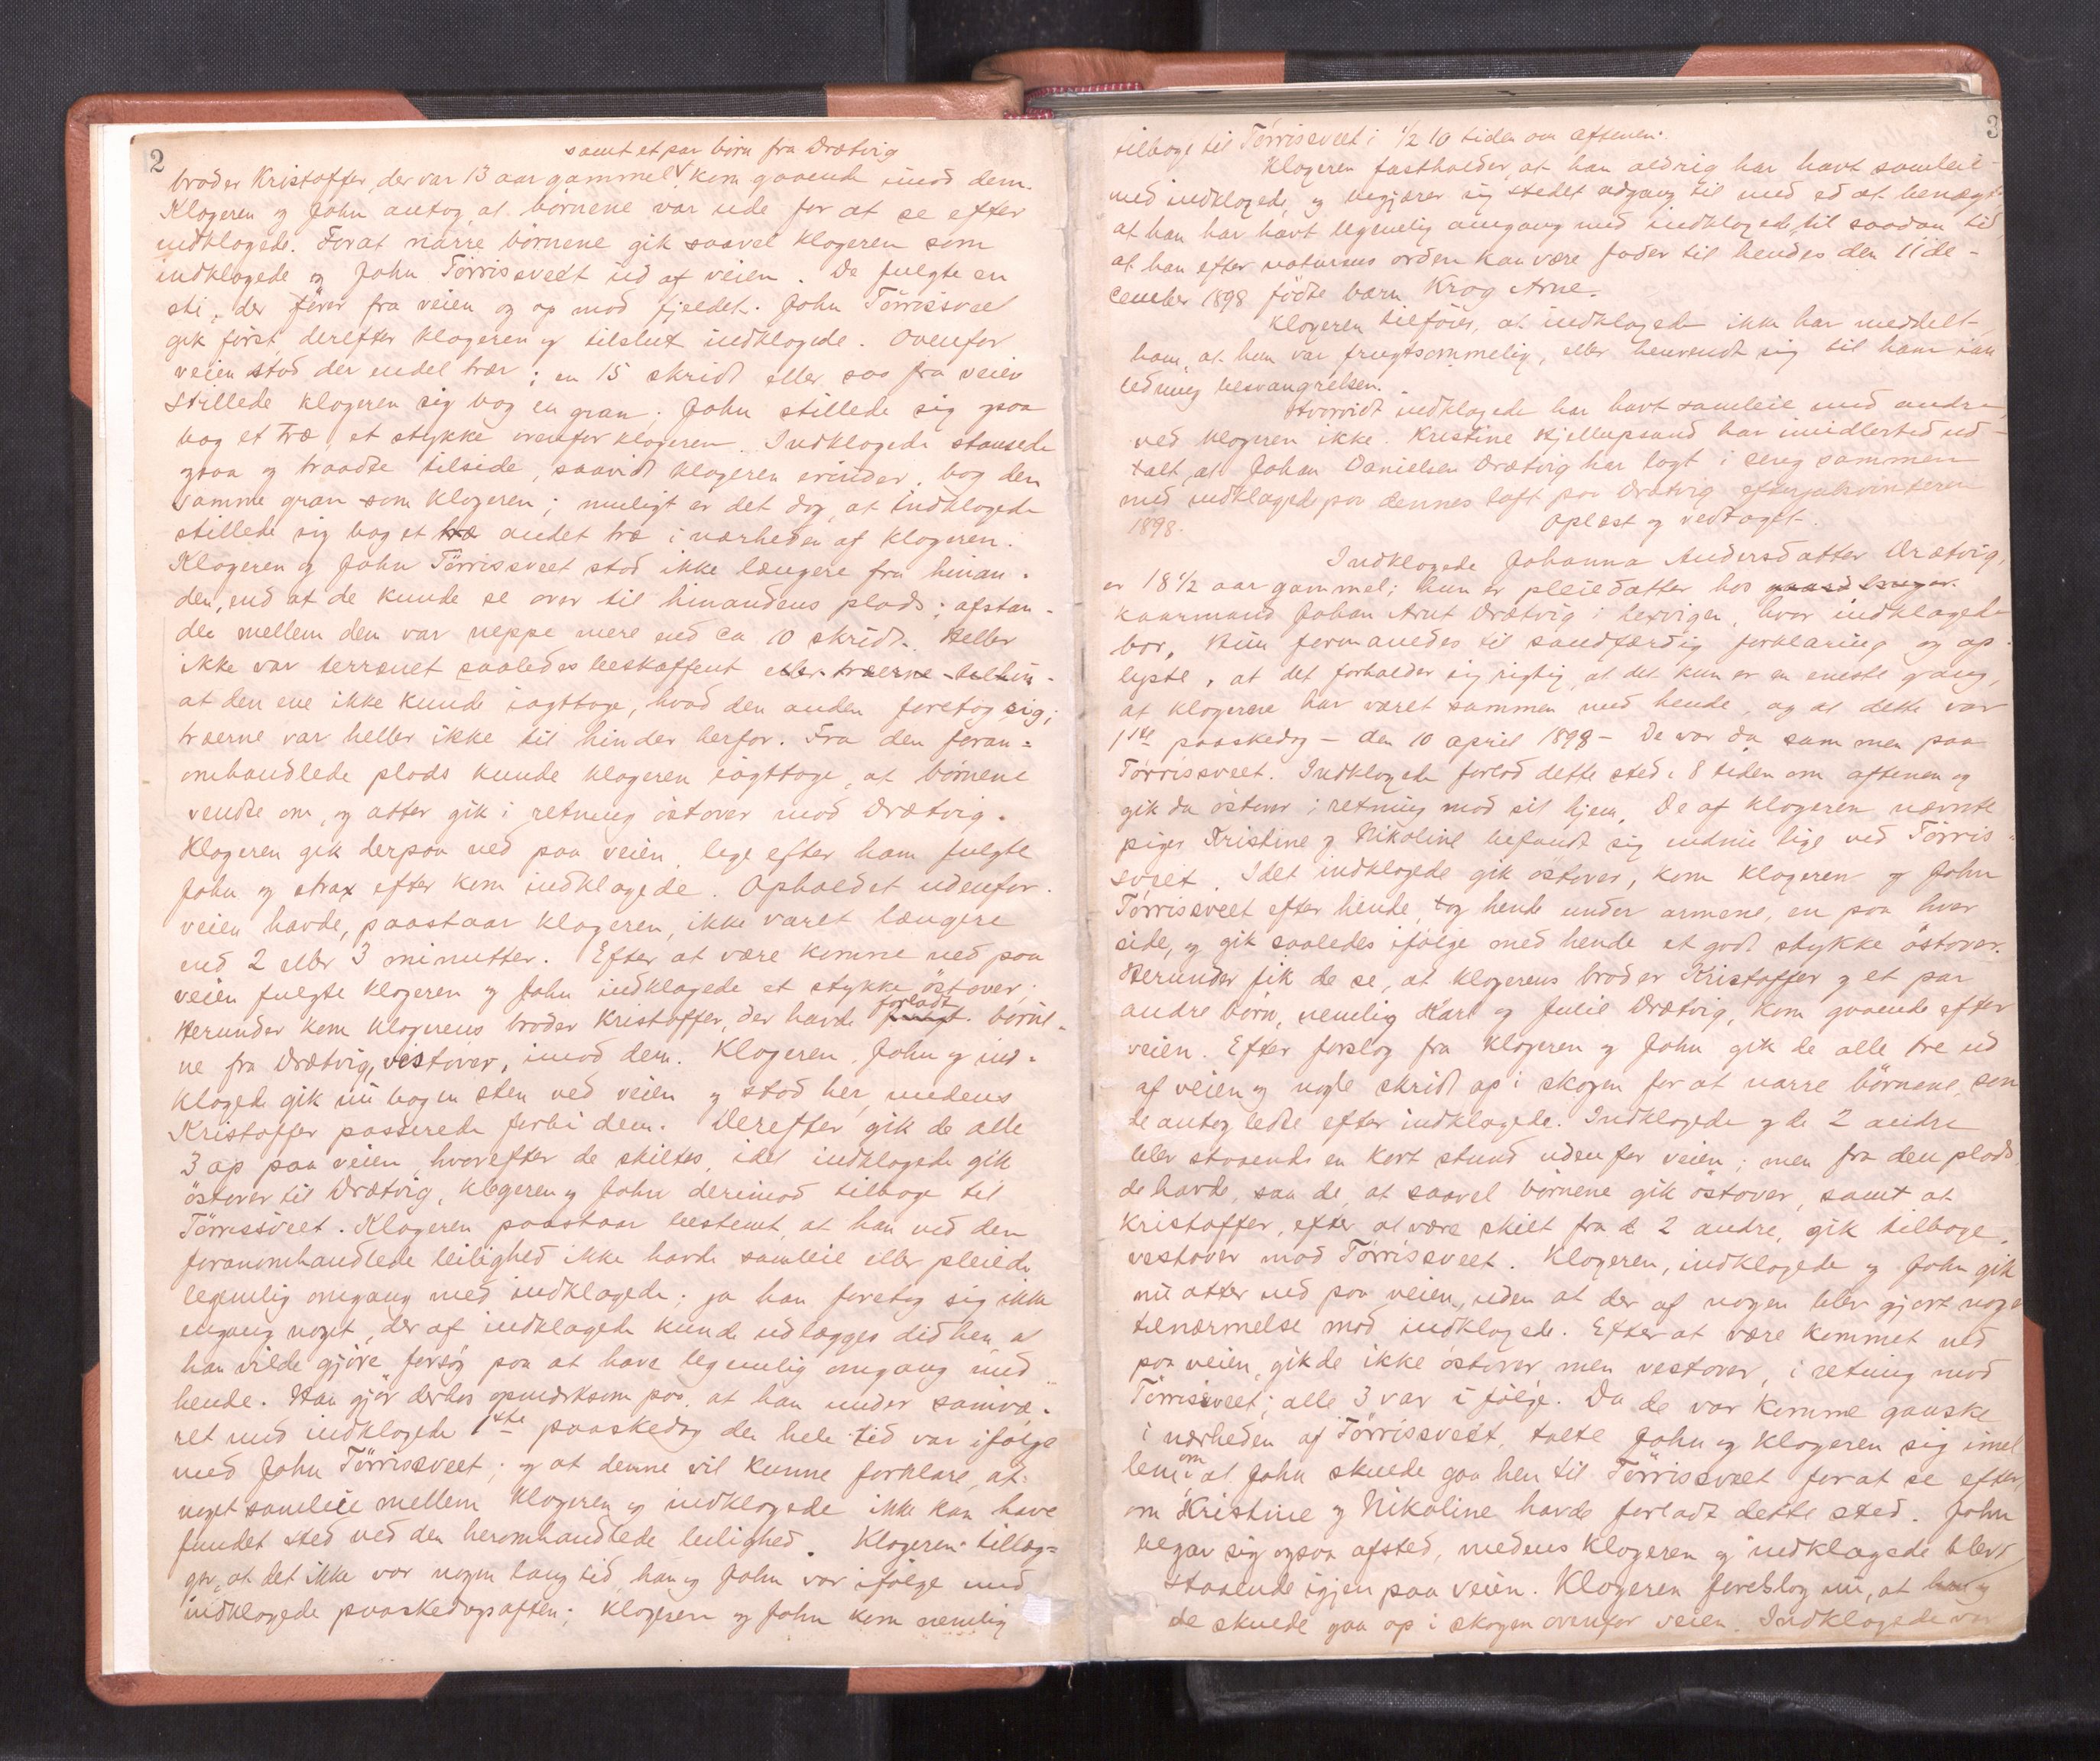 2
samt et par børn fra Drætvig
broder Kristoffer, der var 13 aar gammel, kom gaaende imod dem.
Klageren og John antog, at børnene var ude for at se efter
indklagede. For at narre børnene gik saavel klageren som
indklagede og John Tørrissveet ud af veien. De fulgte en
sti, der fører fra veien og op mod fjeldet. John Tørrissveet
gik først, derefter klageren og tilslut indklagede. Ovenfor
veien stod der endel trær; en 15 skridt eller saa fra veien
stillede klageren sig bag en gran; John stillede sig ogsaa
bag et træ, et stykke ovenfor klageren. Indklagede stansede
ogsaa og traadte tilside, saavidt klageren erindrer, bag den
samme gran som klageren; muligt er det dog, at indklagede
stillede sig bag et træ andet træ i nærheden af klageren.
Klageren og John Tørrissveet stod ikke længere fra hinan-
den, end at de kunde se over til hinandens plads; afstan-
den mellem dem var neppe mere end ca 10 skridt. Heller
ikke var terrænet saaledes beskaffent eller træerne
at den ene ikke kunde iagttage, hvad den anden foretog sig;
træerne var heller ikke til hinder herfor. Fra den foran=
omhandlede plads kunde klageren iagttage, at børnene
vendte om, og atter gik i retning østover mod Drætvig.
Klageren gik derpaa ned paa veien, lige efter ham fulgte
John og strax efter kom indklagede. Opholdet udenfor
veien havde, paastaar klageren, ikke varet længere
end 2 eller 3 minutter. Efter at være komne ned paa
veien fulgte klageren og John indklagede et stykke østover;
forladt
Herunder kom klagerens broder Kristoffer, der havde fulgt børne-
ne fra Drætvig, vestover, imod dem. Klageren, John og ind-
klagede gik nu bag en sten ved veien og stod her, medens
Kristoffer passerede forbi dem. Derefter gik de alle
3 op paa veien, hvorefter de skiltes, idet indklagede gik
østover til Drætvig, klageren og John derimod tilbage til
Tørrissveet. Klageren paastaar bestemt, at han ved den
foranomhandlede leilighed ikke havde samleie eller pleiede
legemlig omgang med indklagede; ja han foretog sig ikke
engang noget, der af indklagede kunde udlægges didhen, at
han vilde gjøre forsøg paa at have legemlig omgang med
hende. Han gjør derhos opmærksom paa, at han under samvæ-
ret med indklagede 1ste paaskedag den hele tid var ifølge
med John Tørrissveet; og at denne vil kunne forklare, at
noget samleie mellem klageren og indklagede ikke kan have
fundet sted ved den heromhandlede leilighed. Klageren tillæg=
ger, at det ikke var nogen lang tid, han og John var ifølge med
indklagede paaskedagsaften; klageren og John kom nemlig
3
tilbage til Tørrissveet i ½ 10 tiden om aftenen.
Klageren fastholder, at han aldrig har havt samleie
med indklagede, og begjærer sig stedet adgang til med ed at benægte
at han har havt legemlig omgang med indklagede til saadan tid,
at han efter naturens orden kan være fader til hendes den 11 de-
cember 1898 fødte barn Krog Arne.
Klageren tilføier, at indklagede ikke har meddelt
ham, at hun var frugtsommelig, eller henvendt sig til ham i an
ledning besvangrelsen.
Hvorvidt indklagede har havt samleie med andre,
ved klageren ikke. Kristine Hjellupsand har imidlertid ud-
talt, at Johan Danielsen Drætvig har lagt i seng sammen
med indklagede paa dennes loft paa Drætvig efterjulsvinteren
1898.
Oplæst og vedtaget.
Indklagede Johanna Andersdatter Drætvig,
er 18 ½ aar gammel; hun er pleiedatter hos
kaarmand Johan Arnt Drætvig i Lervigen, hvor indklagede
bor. Hun formanedes til sandfærdig forklaring og op-
lyste, at det forholder sig rigtig, at det kun er en eneste gang,
at klageren har været sammen med hende, og at dette var
1ste paaskedag – den 10 april 1898 – De var da sammen paa
Tørrissveet. Indklagede forlod dette sted i 8 tiden om aftenen og
gik da østover i retning mod sit hjem. De af klageren nævnte
piger Kristine og Nikoline befandt sig endnu lige ved Tørris=
sveet. Idet indklagede gik østover, kom klageren og John
Tørrissveet efter hende, tog hende under armene, en paa hver
side, og gik saaledes ifølge med hende et godt stykke østover.
Herunder fik de se, at klagerens broder Kristoffer og et par
andre børn, nemlig Karl og Julie Drætvig, kom gaaende efter
veien. Efter forslag fra klageren og John gik de alle tre ud
af veien og nogle skridt op i skogen for at narre børnene, som
de antog ledte efter indklagede. Indklagede og de 2 andre
blev staaende en kort stund udenfor veien; men fra den plads
de havde, saa de, at saavel børnene gik østover, samt at
Kristoffer, efter at være skilt fra de 2 andre, gik tilbage,
vestover mod Tørrissveet. Klageren, indklagede og John gik
nu atter ned paa veien, uden at der af nogen blev gjort nogen
tilnærmelse mod indklagede. Efter at være kommet ned
paa veien, gik de ikke østover, men vestover, i retning mod
Tørrissveet; alle 3 var i følge. Da de var komne ganske
i nærheden af Tørrissveet, talte John og klageren sig imel
om
lem, at John skulde gaa hen til Tørrissveet for at se efter,
om Kristine og Nikoline havde forladt dette sted. John
begav sig ogsaa afsted, medens klageren og indklagede blev
staaende igjen paa veien. Klageren foreslog nu, at han og
de skulde gaa op i skogen ovenfor veien. Indklagede var